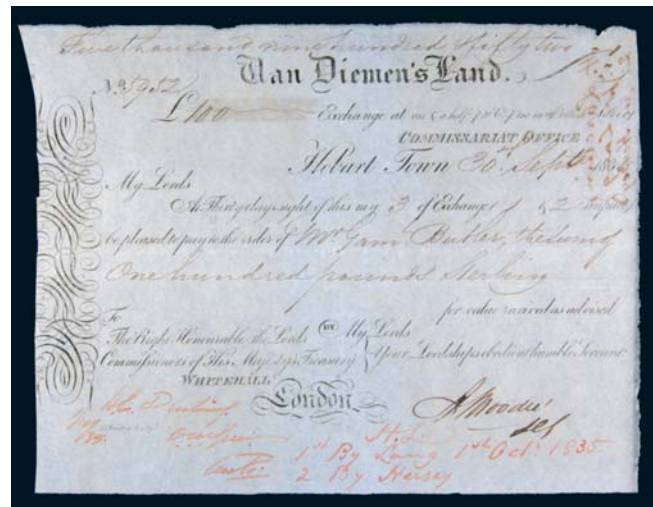 Five thousand nine hundred & fifty two
Van Diemen's Land.
No. 5952
£100 Exchange at one & a half
COMMISSARIAT OFFICE
Hobart Town 30th Sept 1835
My Lords
At Thirty days sight of this my 3 of Exchange
be pleased to pay to the order of Mr Butler, the sum of
One hundred pounds Sterling
for value received as advised
To
The Right Honourable the Lords BY My Lords
Commissioners of His Majestys Treasury Your Lordships obedient humble Servant
WHITEHALL
London
A Moodie
1st By 1st Oct. 1835
2 By